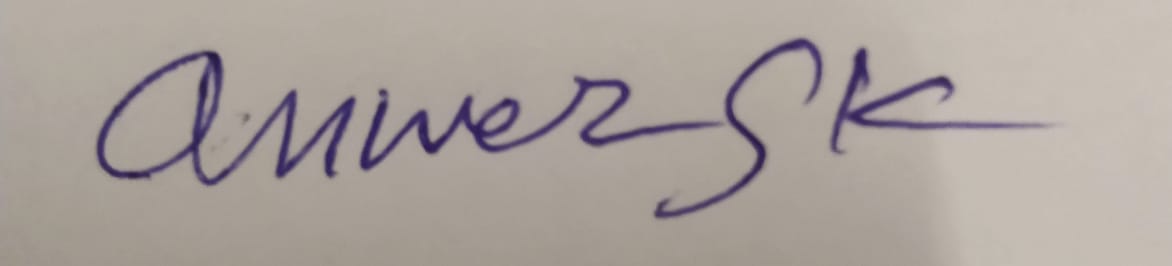 Anwer SK